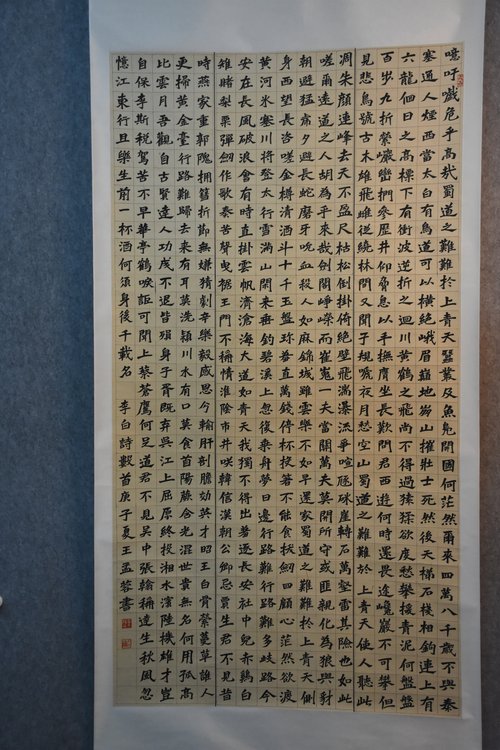 噫吁嚱危乎高哉蜀道之難難於上青天蠶叢及魚鳧開國何茫然爾來四萬八千歲不與秦
塞通人煙西當太白有鳥道可以橫絕峨眉巔地崩山摧壯士死然後天梯石棧相鉤連上有
六龍回日之高標下有衝波逆折之迴川黃鶴之飛尚不得過猿猱欲度愁攀援青泥何盤盤
百步九折縈巖巒捫參歷井仰脅息以手撫膺坐長歎問君西遊何時還畏途巉巖不可攀但
見悲鳥號古木雄飛雌從繞林間又聞子規啼夜月愁空山蜀道之難難於上青天使人聽此
凋朱顏連峰去天不盈尺枯松倒掛倚絕壁飛湍瀑流爭喧豗砯崖轉石萬壑雷其險也如此
嗟爾遠道之人胡為乎來哉劍閣崢嶸而崔嵬一夫當關萬夫莫開所守或匪親化為狼與豺
朝避猛虎夕避長蛇磨牙吮血殺人如麻錦城雖雲樂不如早還家蜀道之難難於上青天側
身西望長咨嗟金樽清酒斗十千玉盤珍羞直萬錢停杯投箸不能食拔劍四顧心茫然欲渡
黃河冰塞川將登太行雪滿山閑來垂釣碧溪上忽復乘舟夢日邊行路難行路難多歧路今
安在長風破浪會有時直掛雲帆濟滄海大道如青天我獨不得出羞逐長安社中兒赤雞白
雉賭梨栗彈劍作歌奏苦聲曳裾王門不稱情淮陰市井咲韓信漢朝公卿忌賈生君不見昔
時燕家重郭隗擁篲折節無嫌猜劇辛樂毅感恩分輸肝剖膽效英才昭王白骨縈蔓草誰人
更掃黃金臺行路難歸去來有耳莫洗潁川水有口莫食首陽蕨含光混世貴無名何用孤高
比雲月吾觀自古賢達人功成不退皆殞身子胥既棄吳江上屈原終投湘水濱陸機雄才豈
自保李斯稅駕苦不早華亭鶴唳詎可聞上蔡蒼鷹何足道君不見吳中張翰稱達生秋風忽
憶江東行且樂生前一杯酒何須身後千載名 李白詩數首庚子夏王孟蓉書